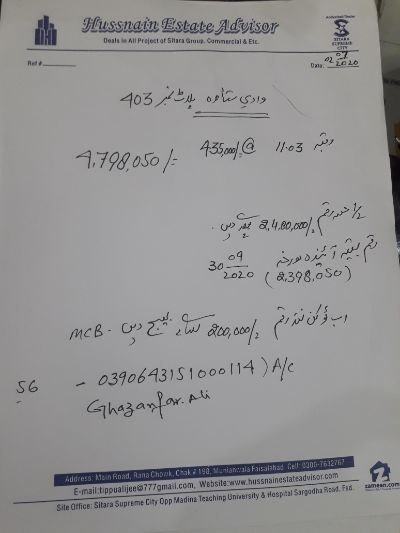 Hussnain Estate Advisor
Deals in All Project of Sitara Group, Commercial & Etc.
Authorized Dealer
S
SITARA
SUPREME
CITY
Ref #
Date: 02 07 2020
وادي ستارہ پلاٹ نمبر 403
رقبہ 11.03 @ 435,000/-
4,798,050/=
1/2 رقم 2,400,000/-
رقم بقیہ آئندہ مورخہ 30 09 2020
(2,398,050)
اب ٹوکن رقم 200,000/- بھیج دیں - MCB
56
- 0390643151000114) A/c
Ghazanfar Ali
Address: Main Road, Rana Chowk, Chak # 198, Munianwala Faisalabad. Cell: 0300-7632767
E-mail:tippualijee@777gmail.com, Website:www.hussnainestateadvisor.com
Site Office: Sitara Supreme City Opp Madina Teaching University & Hospital Sargodha Road, Fsd.
zameen.com